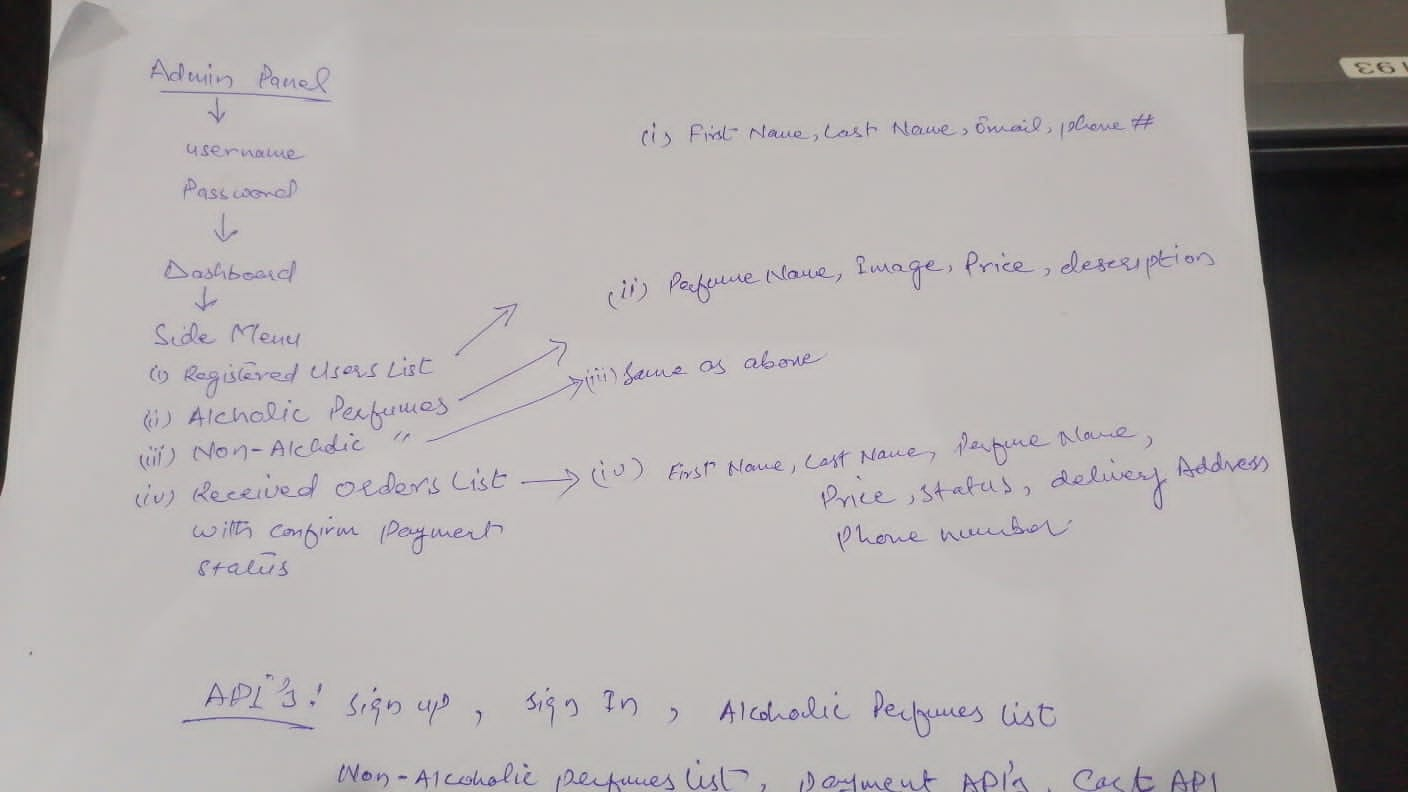 Admin Panel
↓
username
Password
↓
Dashboard
↓
Side Menu
(i) Registered Users List
(ii) Alcholic Perfumes
(iii) Non-Alchdic "
(iv) Received orders List
with confirm payment
status
(i) First Name, Last Name, Email, phone #
(ii) Perfume Name, Image, Price, description
(iii) Same as above
(iv) First Name, Last Name, Perfume Name,
Price, status, delivery Address
Phone number
API's: sign up, sign In, Alcoholic Perfumes list
Non-Alcoholic perfumes list, payment API's, Cart API
193